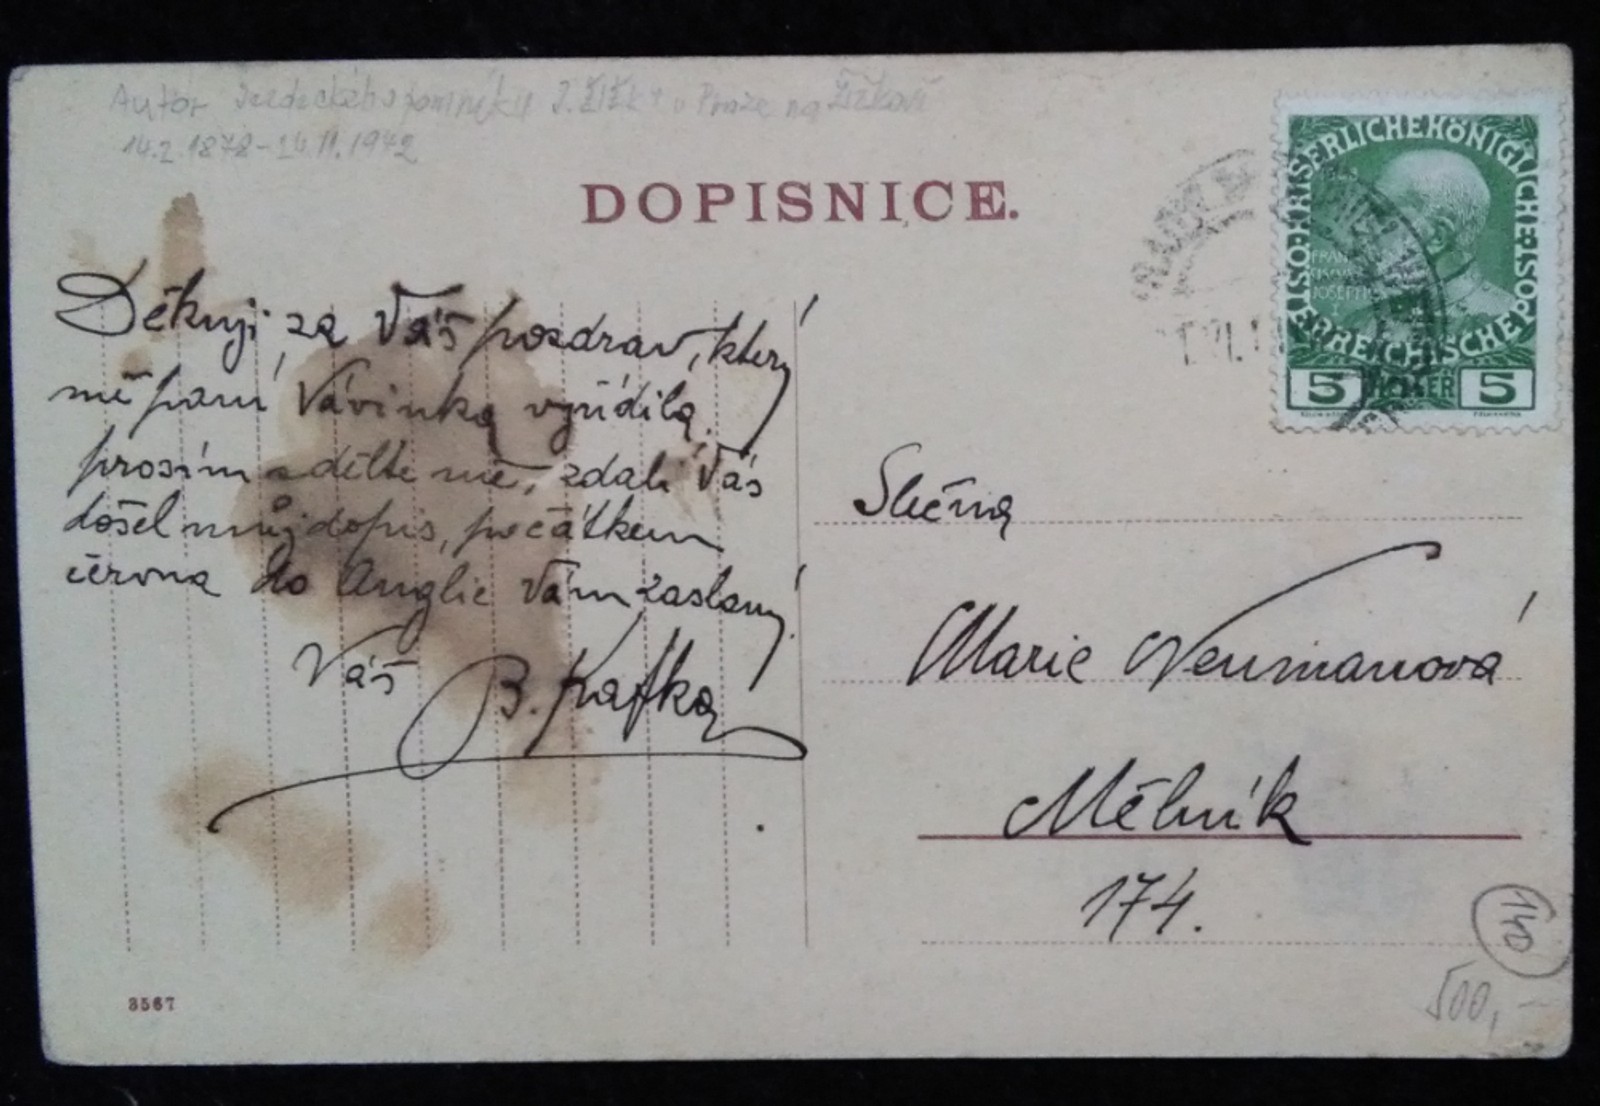 Autor Jezdeckého pomníku J. Žižky v Praze na Žižkově
14.2.1878-24.11.1942
DOPISNICE.
KAISERLICHE KÖNIGLICHE
ÖSTERREICHISCHE POST
FRANCISCVS JOSEPH
5 HELLER 5
Děkuji za Váš pozdrav, který
mě paní Vávinka vyřídila.
prosím sdělte mě, zdali Vás
došel můj dopis, počátkem
června do Anglie Vám zaslaný!
Váš B. Kafka
Slečna
Marie Neumanová
Mělník
174.
140
500,-
3567